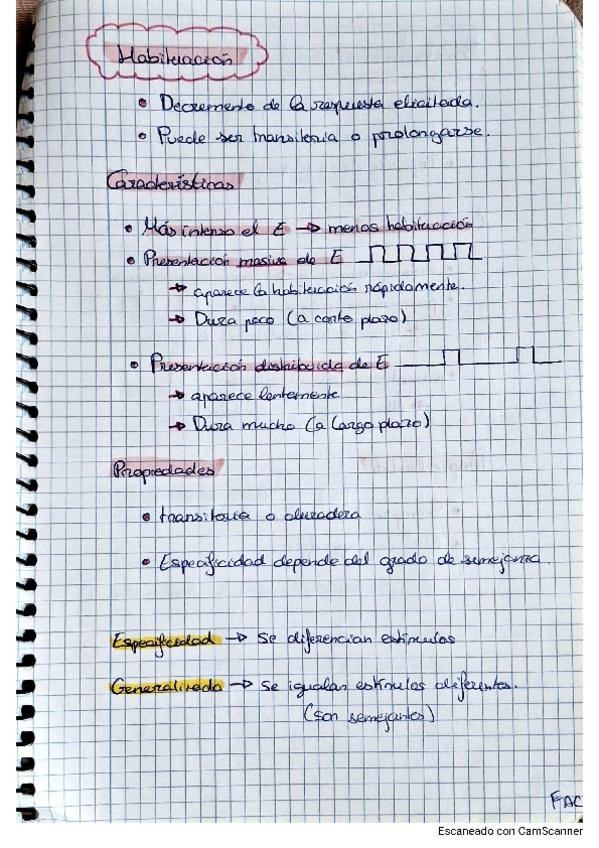 Habituación
• Decremento de la respuesta elicitada.
• Puede ser transitoria o prolongarse.
Características
• Más intenso el E → menos habituación
• Presentación masiva de E
→ aparece la habituación rápidamente.
→ Dura poco (a corto plazo)
• Presentación distribuida de E
→ aparece lentamente
→ Dura mucho (a largo plazo)
Propiedades
• transitoria o duradera
• Especificidad depende del grado de semejanza.
Especificidad → Se diferencian estímulos
Generalizado → Se igualan estímulos diferentes.
(son semejantes)
FAC
Escaneado con CamScanner